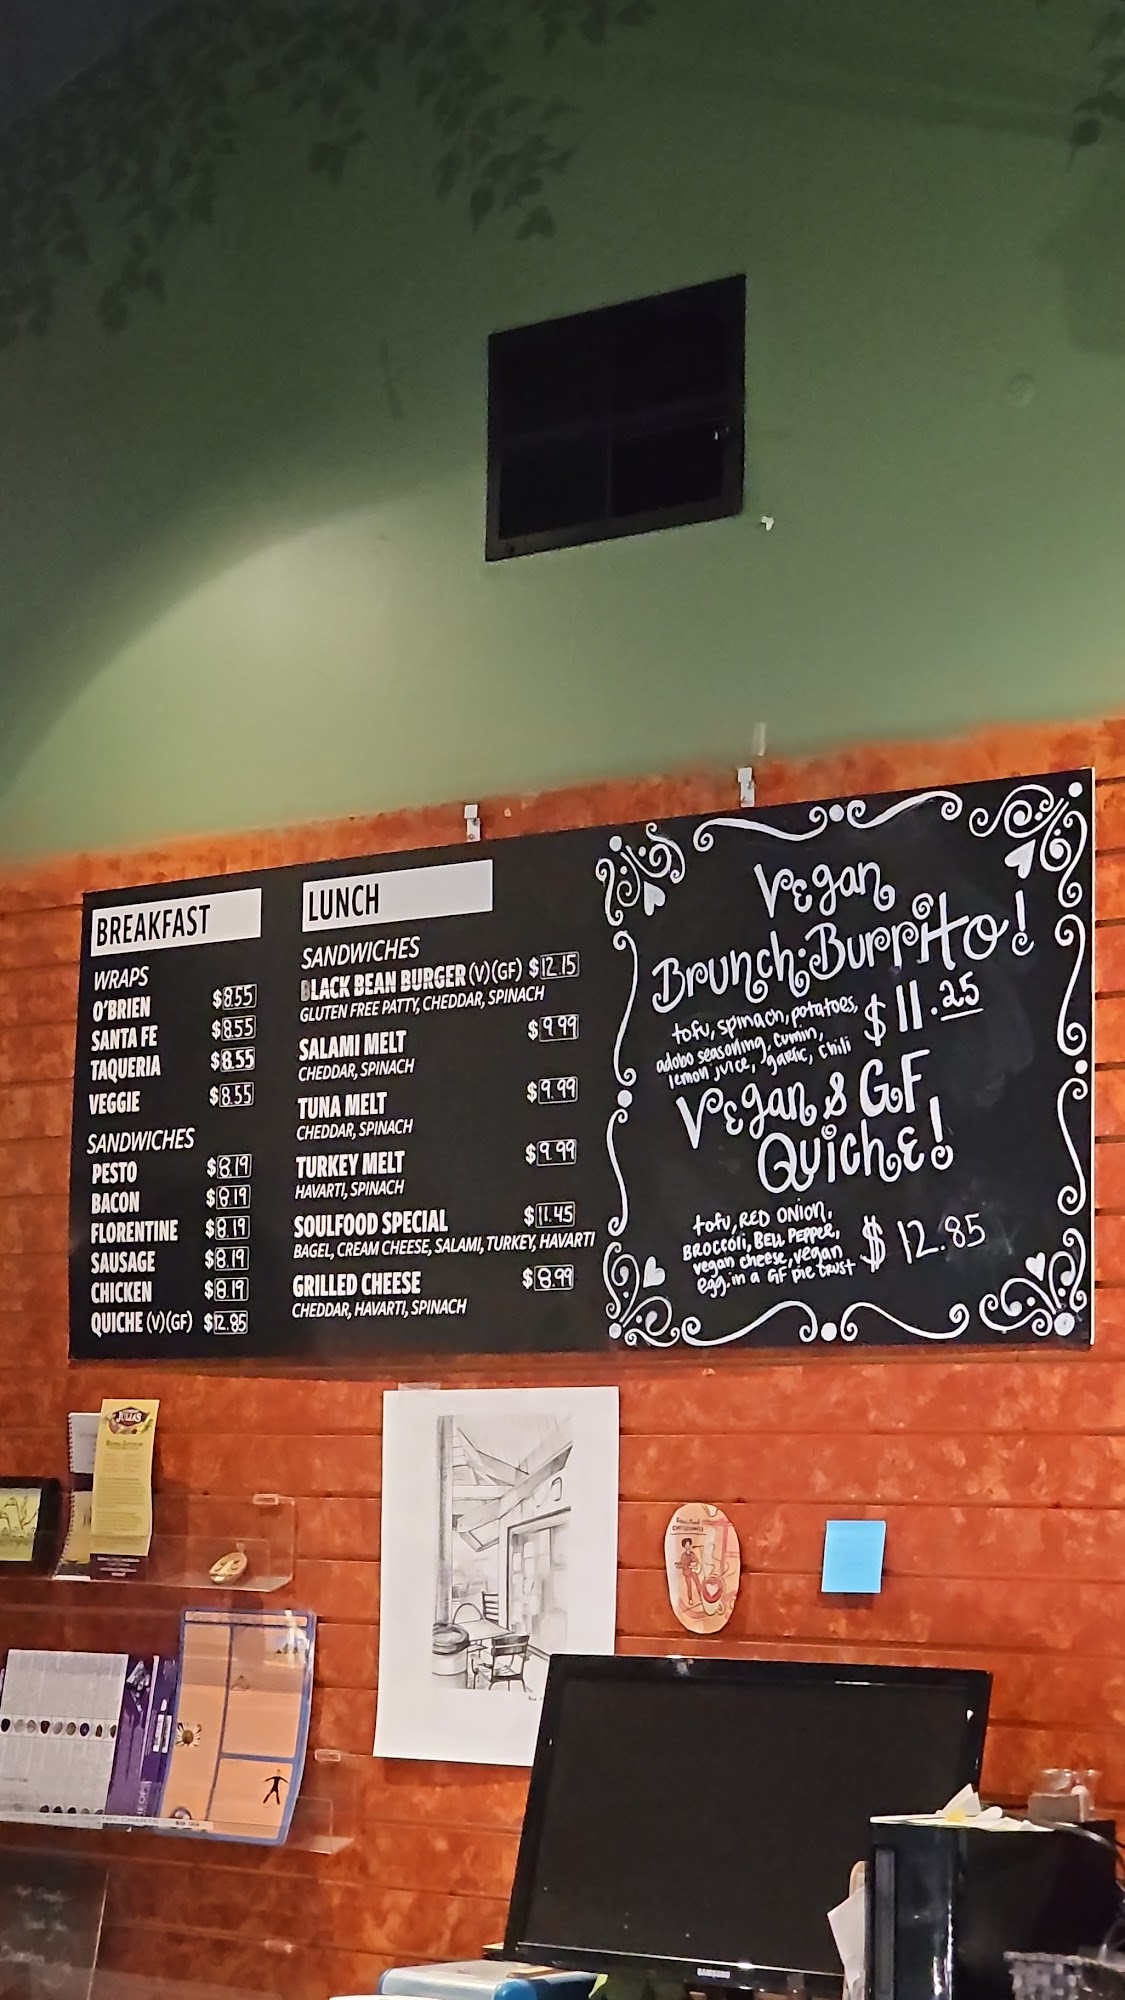 BREAKFAST
WRAPS
O'BRIEN $8.55
SANTA FE $8.55
TAQUERIA $8.55
VEGGIE $8.55
SANDWICHES
PESTO $8.19
BACON $8.19
FLORENTINE $8.19
SAUSAGE $8.19
CHICKEN $8.19
QUICHE (V)(GF) $12.85
LUNCH
SANDWICHES
BLACK BEAN BURGER (V)(GF) $12.15
GLUTEN FREE PATTY, CHEDDAR, SPINACH
SALAMI MELT $9.99
CHEDDAR, SPINACH
TUNA MELT $9.99
CHEDDAR, SPINACH
TURKEY MELT $9.99
HAVARTI, SPINACH
SOULFOOD SPECIAL $11.45
BAGEL, CREAM CHEESE, SALAMI, TURKEY, HAVARTI
GRILLED CHEESE $8.99
CHEDDAR, HAVARTI, SPINACH
Vegan
Brunch·Burrito!
tofu, spinach, potatoes,
adobo seasoning, cumin,
lemon juice, garlic, chili
$11.25
Vegan & GF
Quiche!
tofu, RED ONION,
BROCCOLI, BELL PEPPER,
vegan cheese, vegan
egg. in a GF pie crust
$12.85
JULIA'S
SAMSUNG